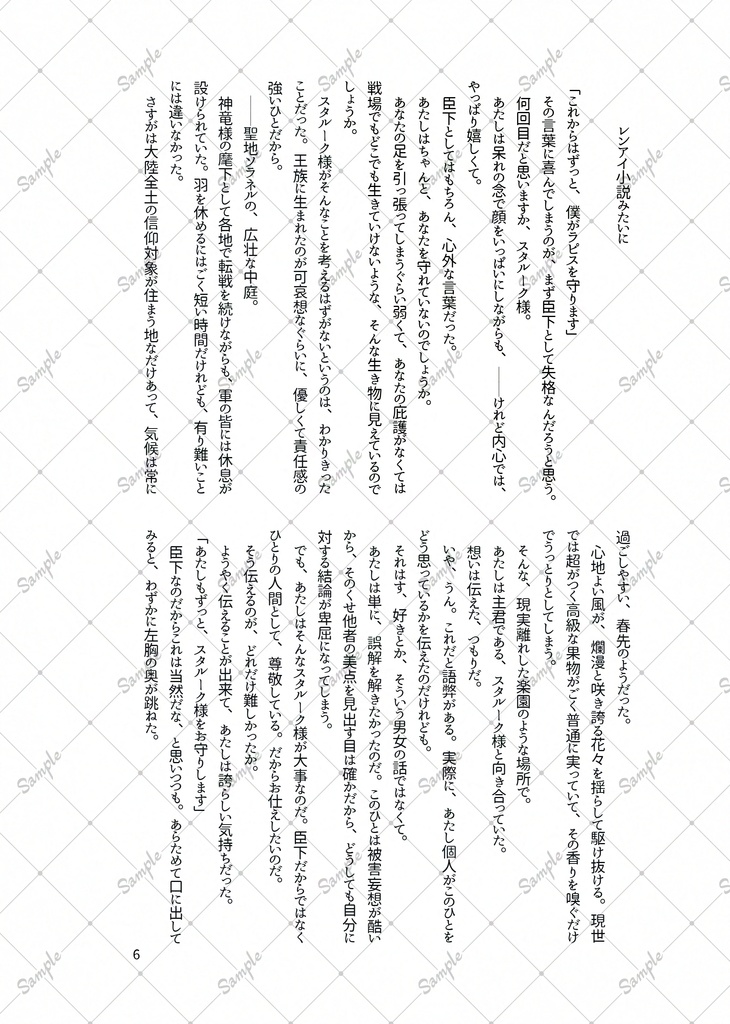 レンアイ小説みたいに
「これからはずっと、僕がラピスを守ります」
その言葉に喜んでしまうのが、まず臣下として失格なんだろうと思う。
何回目だと思いますか、スタルーク様。
あたしは呆れの念で顔をいっぱいにしながらも、――けれど内心では、
やっぱり嬉しくて。
臣下としてはもちろん、心外な言葉だった。
あたしはちゃんと、あなたを守れていないのでしょうか。
あなたの足を引っ張ってしまうぐらい弱くて、あなたの庇護がなくては
戦場でもどこでも生きていけないような、そんな生き物に見えているので
しょうか。
スタルーク様がそんなことを考えるはずがないというのは、わかりきった
ことだった。王族に生まれたのが可哀想なぐらいに、優しくて責任感の
強いひとだから。
――聖地ソラネルの、広壮な中庭。
神竜様の麾下として各地で転戦を続けながらも、軍の皆には休息が
設けられていた。羽を休めるにはごく短い時間だけれども、有り難いこと
には違いなかった。
さすがは大陸全土の信仰対象が住まう地なだけあって、気候は常に
過ごしやすい、春先のようだった。
心地よい風が、爛漫と咲き誇る花々を揺らして駆け抜ける。現世
では超がつく高級な果物がごく普通に実っていて、その香りを嗅ぐだけ
でうっとりとしてしまう。
そんな、現実離れした楽園のような場所で。
あたしは主君である、スタルーク様と向き合っていた。
想いは伝えた、つもりだ。
いや、うん。これだと語弊がある。実際に、あたし個人がこのひとを
どう思っているかを伝えたのだけれども。
それはす、好きとか、そういう男女の話ではなくて。
あたしは単に、誤解を解きたかったのだ。このひとは被害妄想が酷い
から、そのくせ他者の美点を見出す目は確かだから、どうしても自分に
対する結論が卑屈になってしまう。
でも、あたしはそんなスタルーク様が大事なのだ。臣下だからではなく
ひとりの人間として、尊敬している。だからお仕えしたいのだ。
そう伝えるのが、どれだけ難しかったか。
ようやく伝えることが出来て、あたしは誇らしい気持ちだった。
「あたしもずっと、スタルーク様をお守りします」
臣下なのだからこれは当然だな、と思いつつも。あらためて口に出して
みると、わずかに左胸の奥が跳ねた。
6